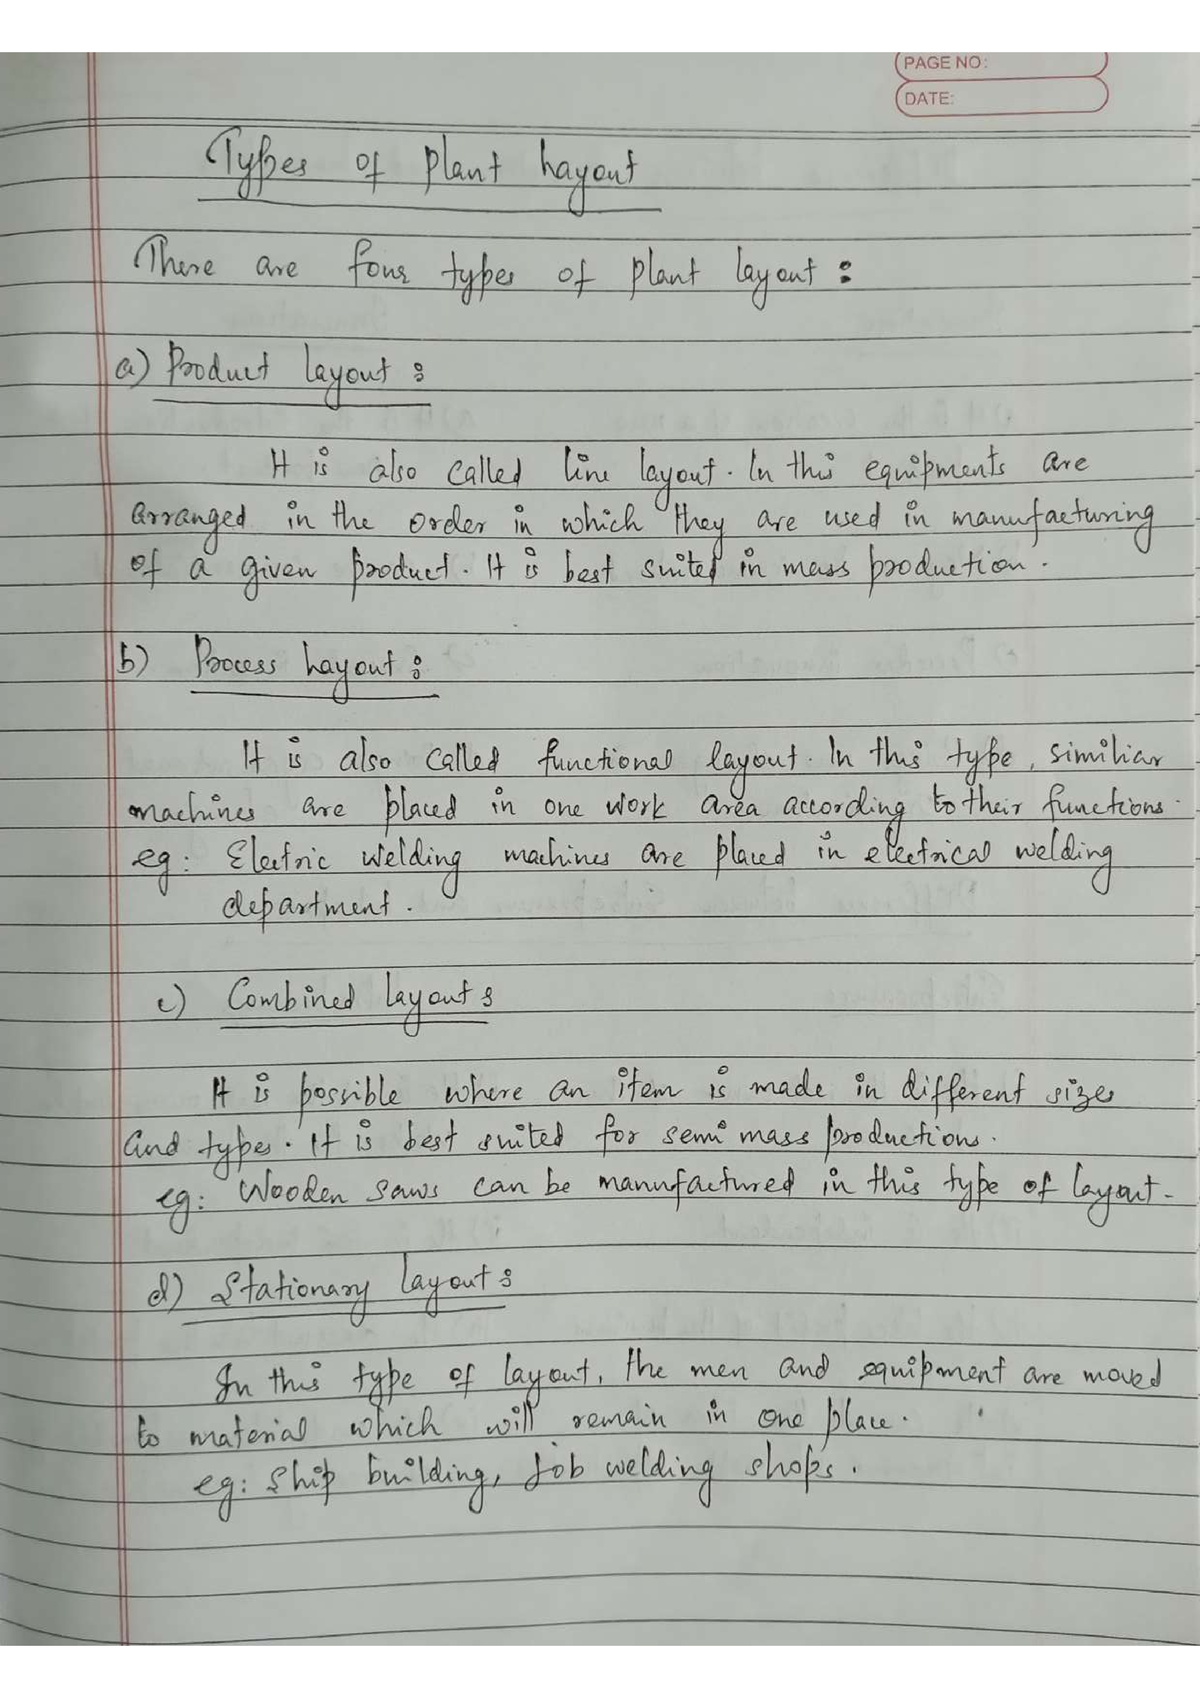 PAGE NO:
DATE:
Types of plant Layout
There are four types of plant layout :
a) Product layout :
It is also called line layout. In this equipments are
arranged in the order in which they are used in manufacturing
of a given product. It is best suited in mass production.
b) Process Layout :
It is also called functional layout. In this type, similiar
machines are placed in one work area according to their functions.
eg: Electric welding machines are placed in electrical welding
department.
c) Combined layout :
It is possible where an item is made in different sizes
and types. It is best suited for semi mass productions.
eg: Wooden saws can be manufactured in this type of layout.
d) Stationary layout :
In this type of layout, the men and equipment are moved
to material which will remain in one place.
eg: Ship building, Job welding shops.